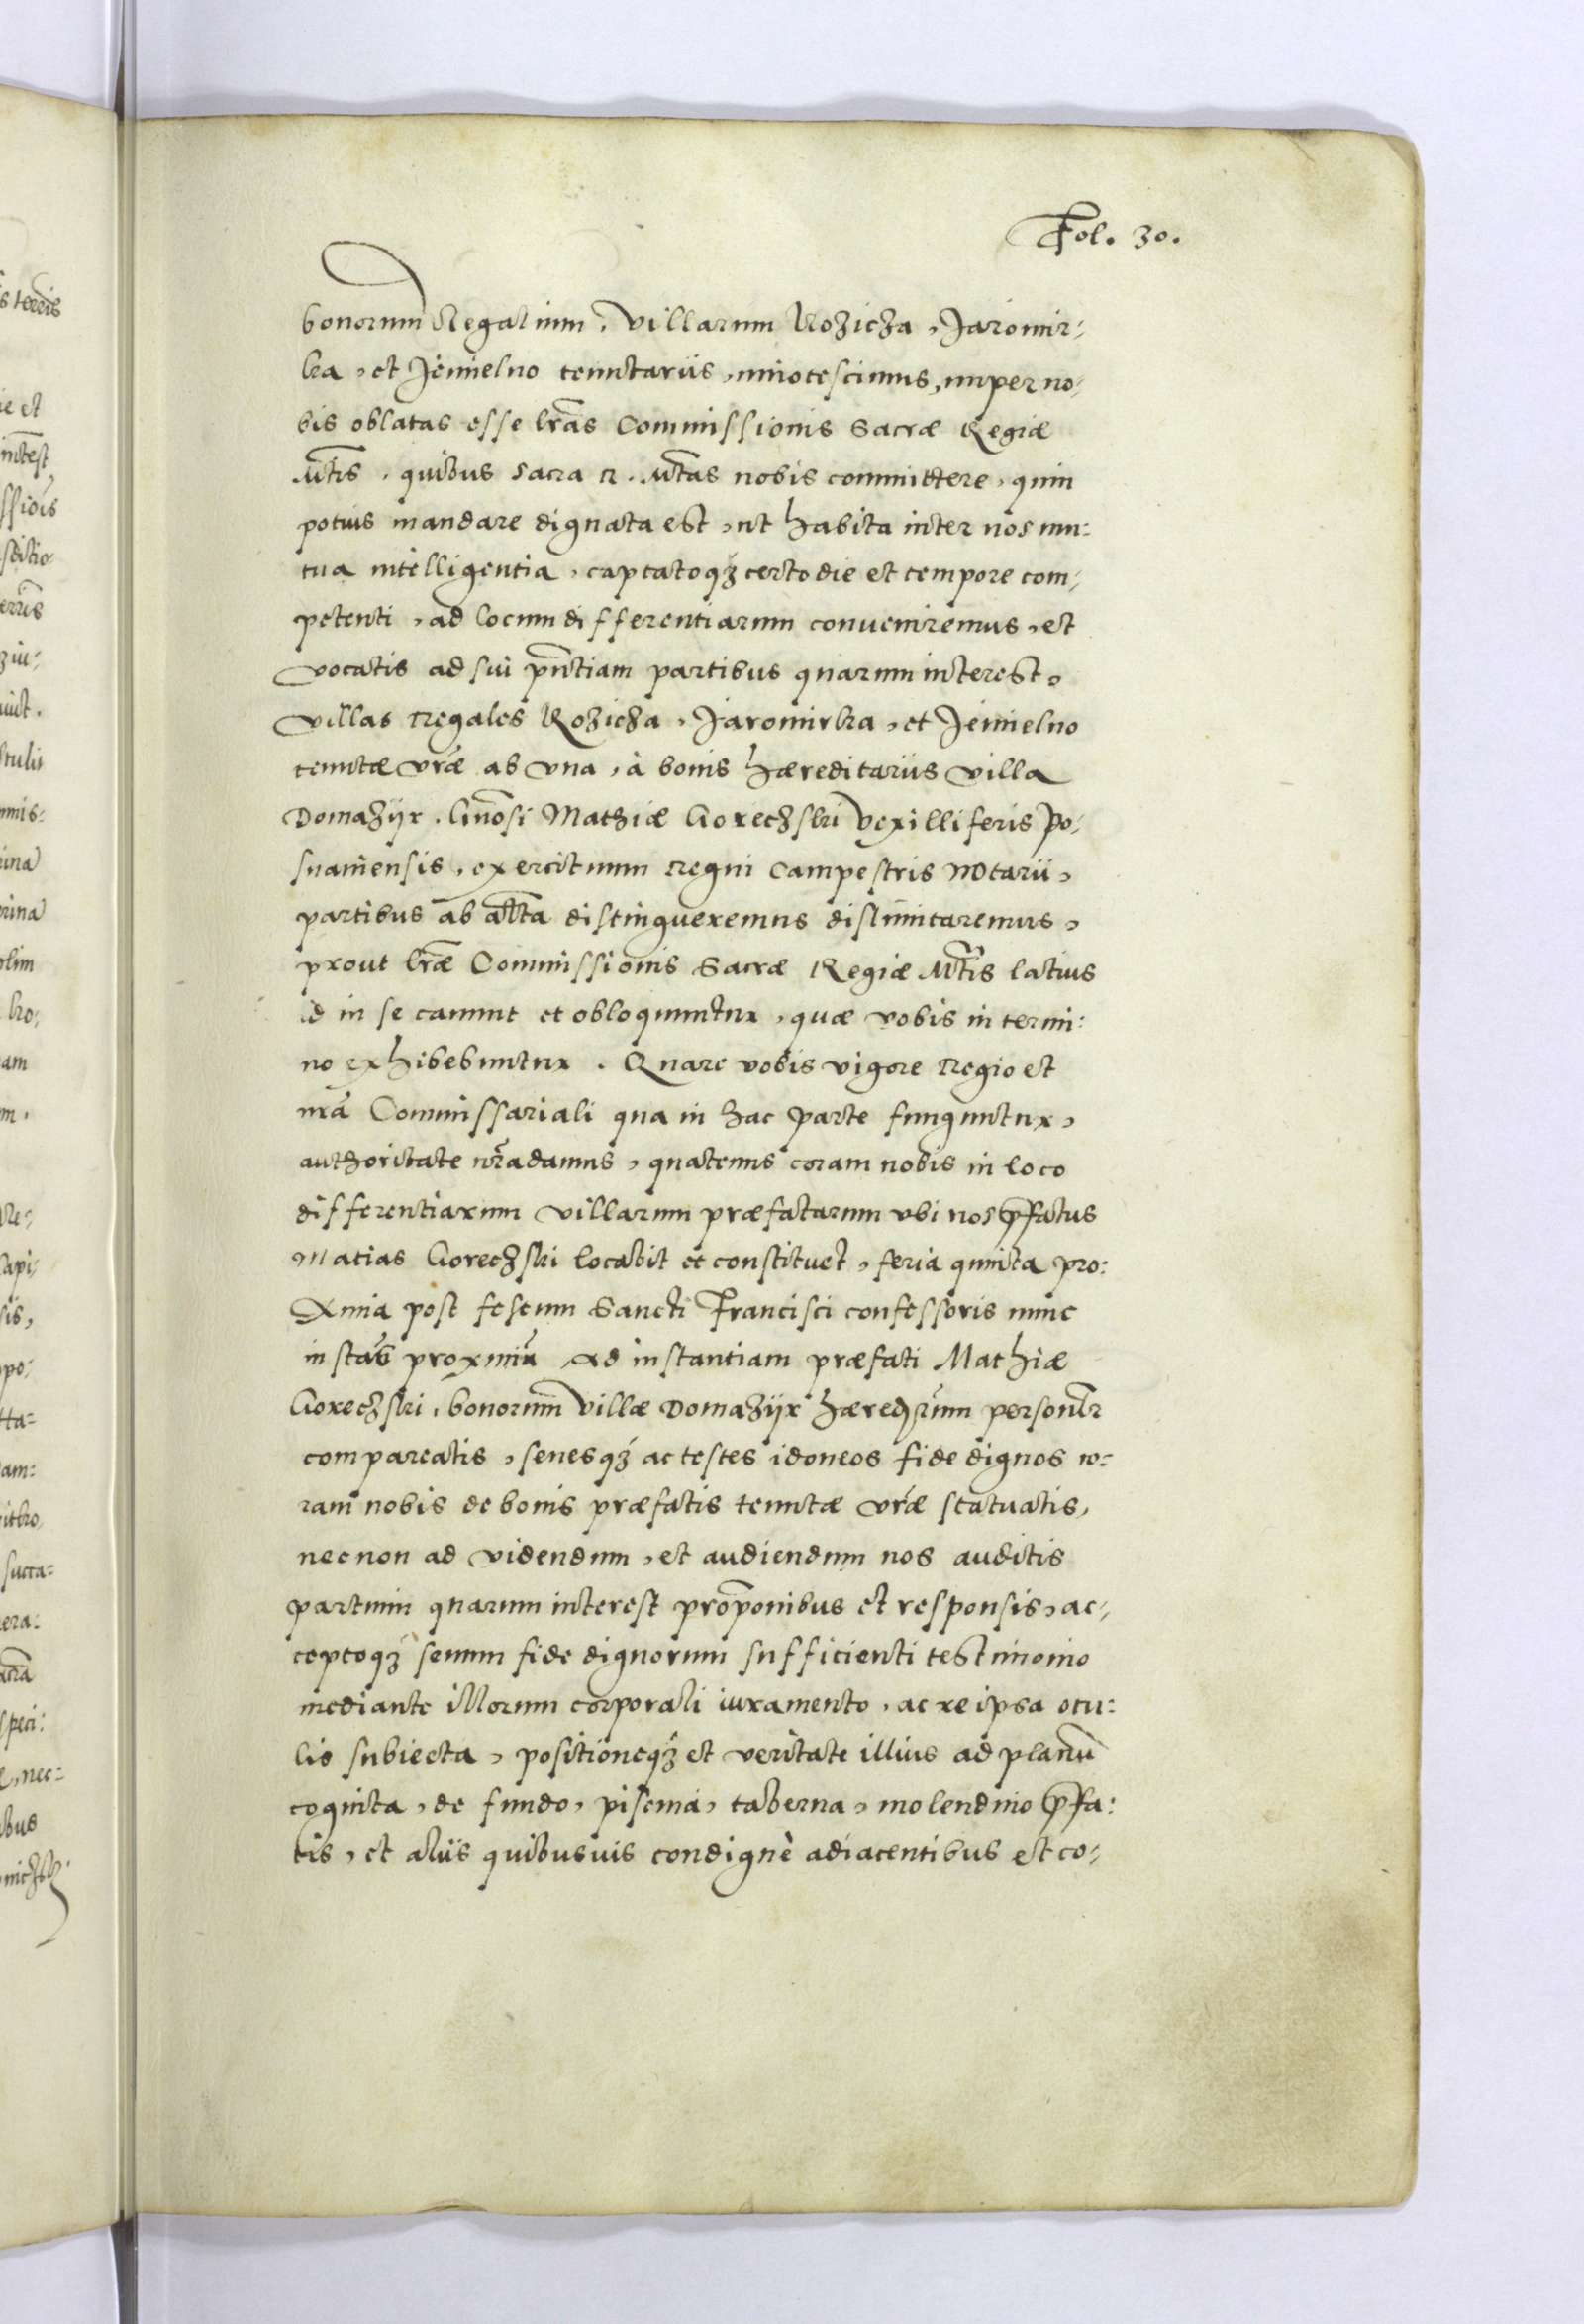 Fol. 30.
bonorum Regalium, villarum Rozicza, Jaromir-
ka, et Jemielno tenutariis, innotescimus, nuper no-
bis oblatas esse lr̃as Commissionis Sacræ Regiæ
Mt̃is, quibus Sacra R. Mt̃as nobis committere, quin
potius mandare dignata est, ut habita inter nos mu:
tua intelligentia, captatoqȝ certo die et tempore com-
petenti, ad locum differentiarum conveniremus, et
vocatis ad sui pñtiam partibus quarum interest,
villas Regales Rozicza, Jaromirka, et Jemielno
tenutæ vr̃æ ab vna, à bonis hæreditariis villa
Domaziyr, Gñosi Mathiæ Gorecżski Vexilliferis Po-
snaniensis, exercituum Regni Campestris Notarii,
partibus ab alt̃a distingueremus dislimitaremus,
prout lr̃æ Commissionis Sacræ Regiæ Mt̃is latius
id in se canunt et obloquuntur, quæ vobis in termi:
no exhibebuntur. Quare vobis vigore Regio et
nr̃a Commissariali qua in hac parte funguntur,
authoritate nr̃a damus, quatenus coram nobis in loco
differentiarum villarum præfatarum vbi nos p̃fatus
Matias Gorecżski locabit et constituet, feria quinta pro:
xima post festum Sancti Francisci confessoris nunc
instan̄ proximū, ad instantiam præfati Mathiæ
Gorecżski, bonorum villæ Domaziyr hæred̃um personlr̃
compareatis, senesqȝ ac testes idoneos fide dignos co:
ram nobis de bonis præfatis tenutæ vr̃æ statuatis,
nec non ad videndum, et audiendum nos auditis
partium quarum interest prop̃onibus et responsis, ac-
ceptoqȝ senum fide dignorum sufficienti testimonio
mediante illorum corporali iuramento, ac re ipsa ocu:
lis subiecta, positioneqȝ et veritate illius ad planū
cognita, de fundo, piscina, taberna, molendino p̃fa:
tis, et aliis quibusvis condignè adiacentibus et co-